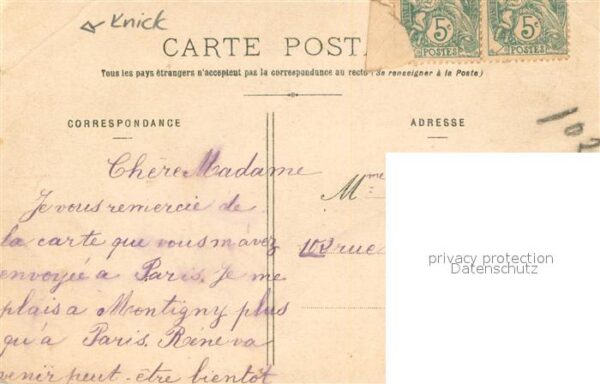 Knick
CARTE POSTA
5c 5c
POSTES POSTES
Tous les pays étrangers n'acceptent pas la correspondance au recto (Se renseigner à la Poste)
CORRESPONDANCE
ADRESSE
102
Chère Madame
Je vous remercie de
la carte que vous m avez
envoyée a Paris. Je me
plais a Montigny plus
qu'à Paris. Réne va
venir peut-être bientôt
Mme
102 rue
privacy protection
Datenschutz